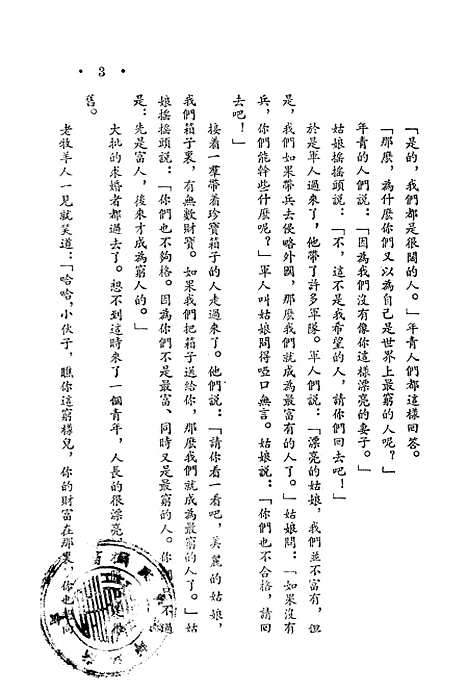 • 3 •
「是的，我們都是很闊的人。」年青人們都這樣回答。
「那麼，為什麼你們又以為自己是世界上最窮的人呢？」
年青的人們說：「因為我們沒有像你這樣漂亮的妻子。」
姑娘搖搖頭說：「不，這不是我希望的人，請你們回去吧！」
於是軍人過來了，他帶了許多軍隊。軍人們說：「漂亮的姑娘，我們並不富有，但
是，我們如果帶兵去侵略外國，那麼我們就成為最富有的人了。」姑娘問：「如果沒有
兵，你們能幹些什麼呢？」軍人叫姑娘問得啞口無言。姑娘說：「你們也不合格，請回
去吧！」
接着一羣帶着珍寶箱子的人走過來了。他們說：「請你看一看吧，美麗的姑娘，
我們箱子裏，有無數財寶。如果我們把箱子送給你，那麼我們就成為最窮的人了。」姑
娘搖搖頭說：「你們也不夠格。因為你們不是最富、同時又是最窮的人。你
不過
是：先是富人，後來才成為窮人的。」
大批的求婚者都過去了。想不到這時來了一個青年，人長的很漂亮
舊。
老牧羊人一見就笑道：「哈哈，小伙子，瞧你這窮樣兒，你的財富在那裏
你也